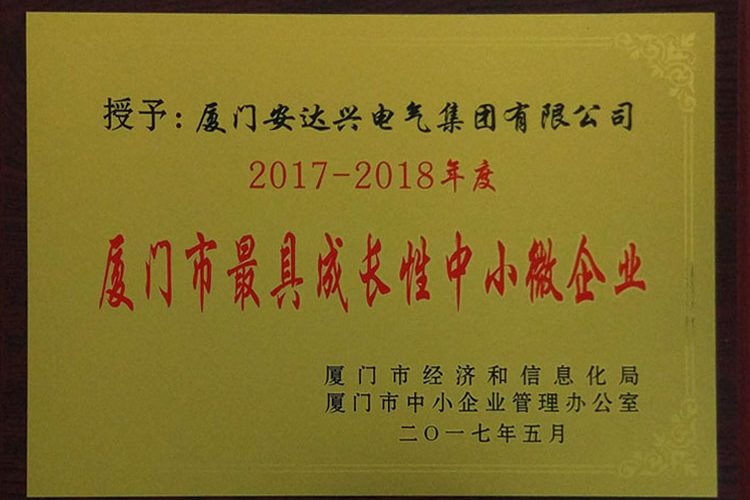 授予：厦门安达兴电气集团有限公司
2017-2018年度
厦门市最具成长性中小微企业
厦门市经济和信息化局
厦门市中小企业管理办公室
二〇一七年五月